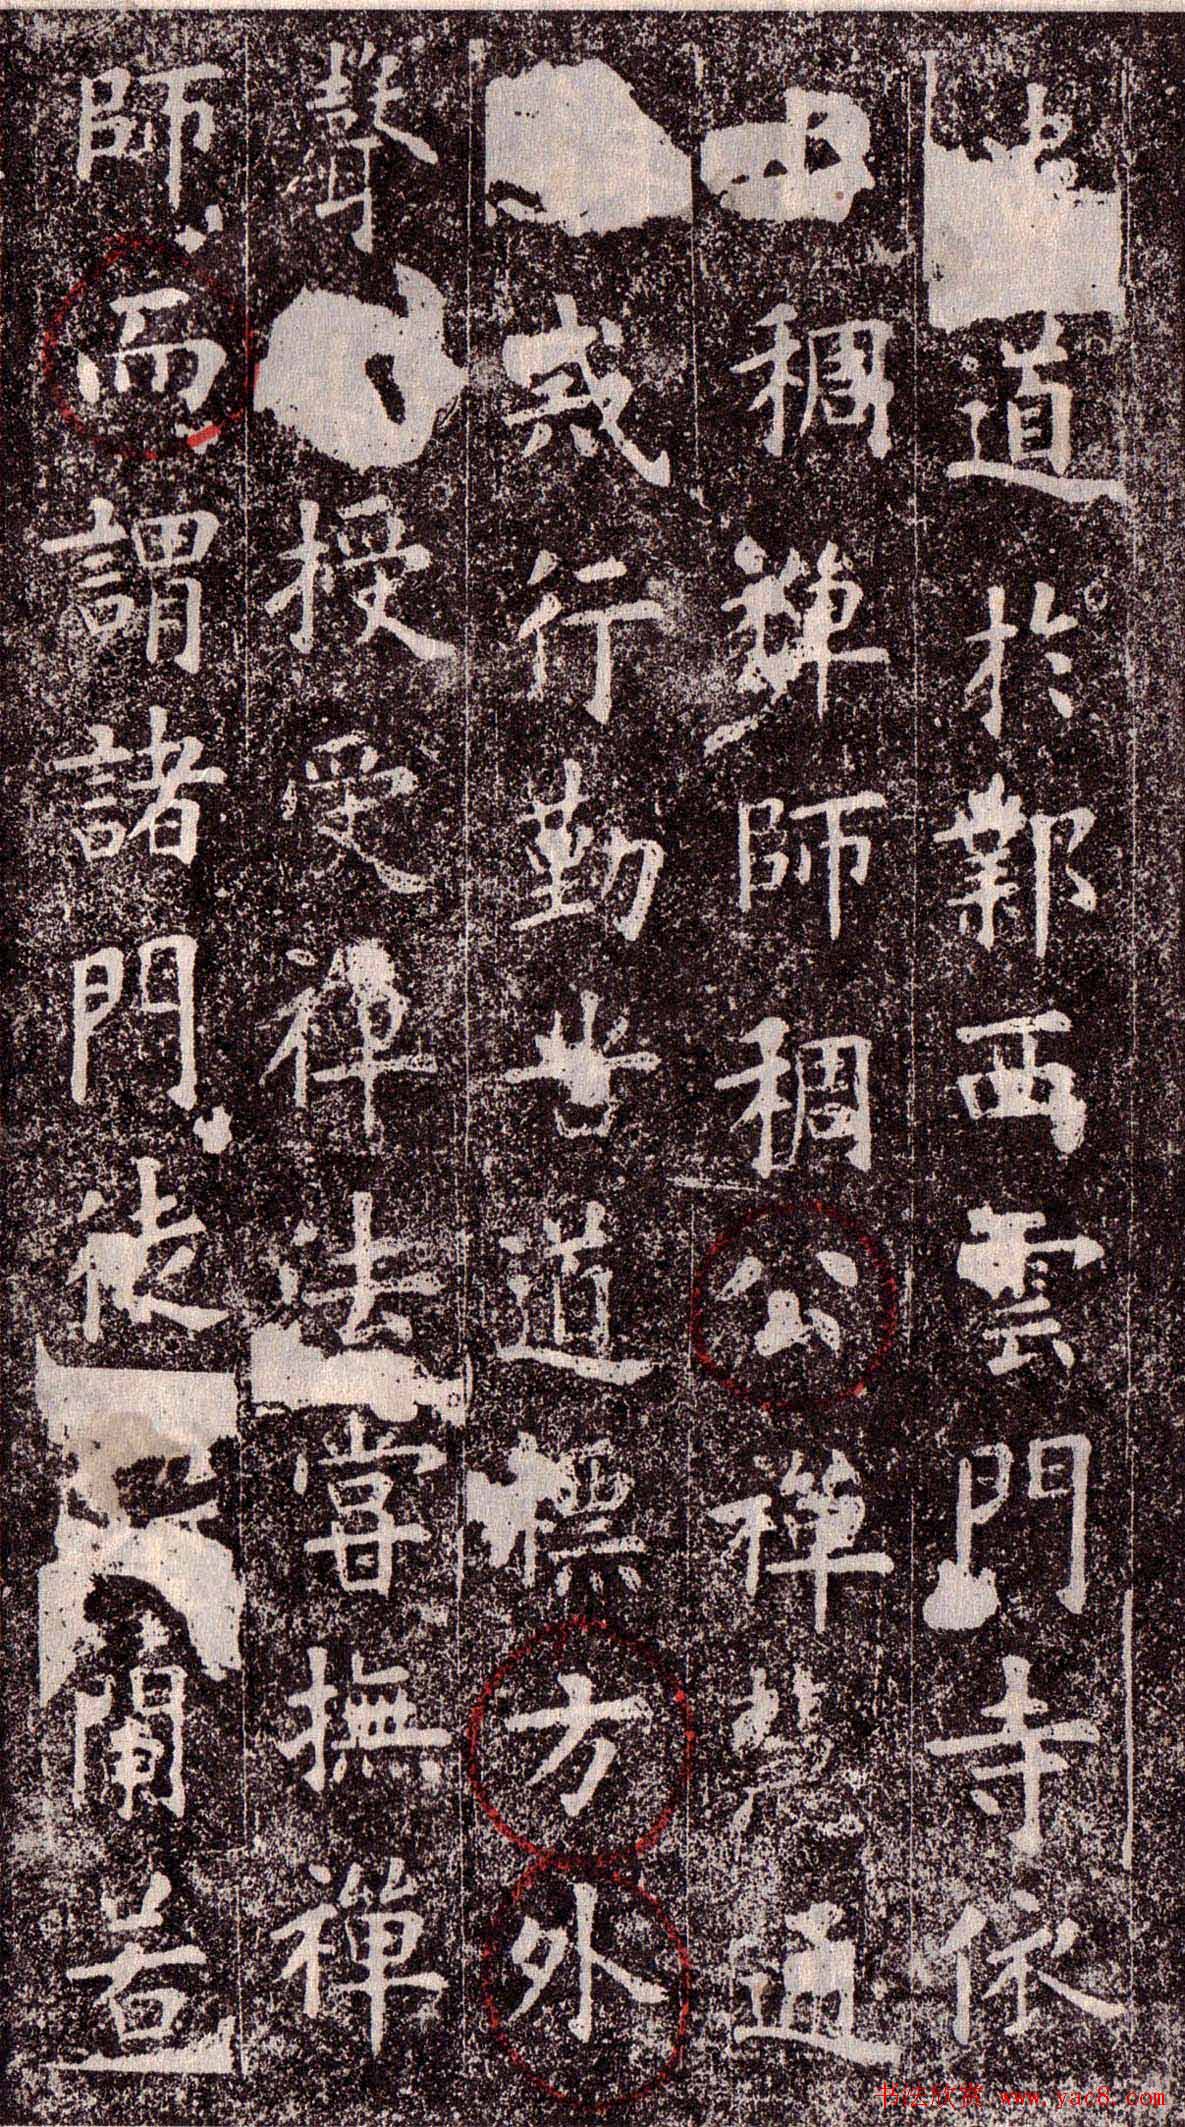 道於鄴西雲門寺依
稠禪師稠公禪慧通
戒行勤苦道標方外
聲授受禪法嘗撫禪
師而謂諸門徒蘭若
书法欣赏 www.yac8.com